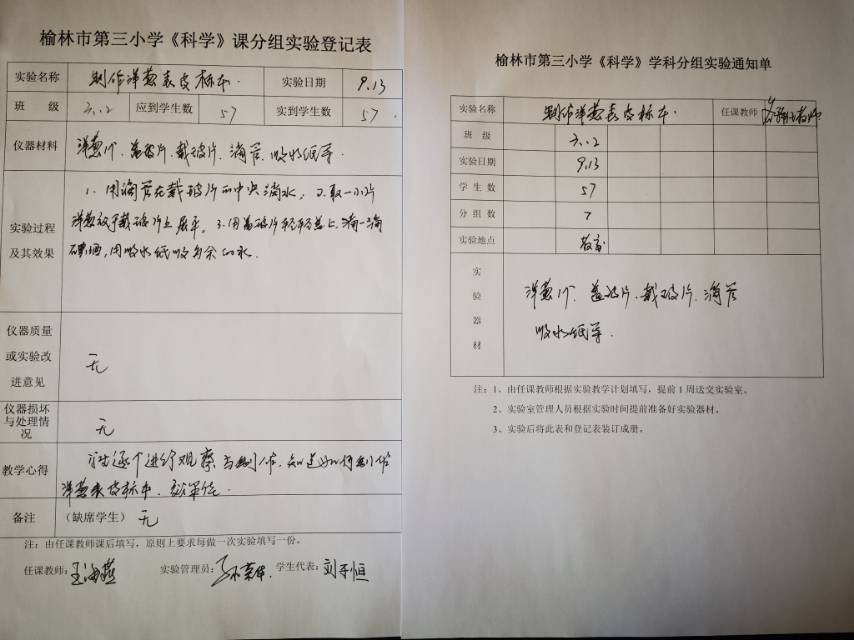 榆林市第三小学《科学》课分组实验登记表
实验名称 制作洋葱表皮标本 实验日期 9.13
班 级 六.2 应到学生数 57 实到学生数 57
仪器材料 洋葱1个、盖玻片、载玻片、滴管、吸水纸等.
实验过程及其效果
1. 用滴管在载玻片的中央滴水, 2.取一小片
洋葱放于载玻片上展平. 3.用盖玻片 盖上,滴一滴
碘酒,用吸水纸吸多余的水.
仪器质量或实验改进意见 无
仪器损坏与处理情况 无
教学心得 逐个进行观察与制作,知道如何制作
洋葱表皮标本.
备注 (缺席学生) 无
注:由任课教师课后填写,原则上要求每做一次实验填写一份。
任课教师:王海燕 实验管理员: 学生代表:刘子恒
榆林市第三小学《科学》学科分组实验通知单
实验名称 制作洋葱表皮标本. 任课教师
班 级 六.2
实验日期 9.13
学 生 数 57
分 组 数 7
实验地点 教室
实验器材 洋葱1个、盖玻片、载玻片、滴管
吸水纸等.
注:1、由任课教师根据实验教学计划填写,提前1周送交实验室。
2、实验室管理人员根据实验时间提前准备好实验器材。
3、实验后将此表和登记表装订成册。